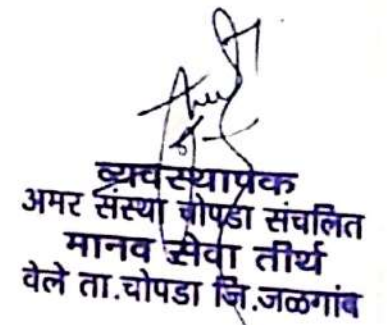 व्यवस्थापक
अमर संस्था चोपडा संचलित
मानव सेवा तीर्थ
वेले ता.चोपडा जि.जळगांव